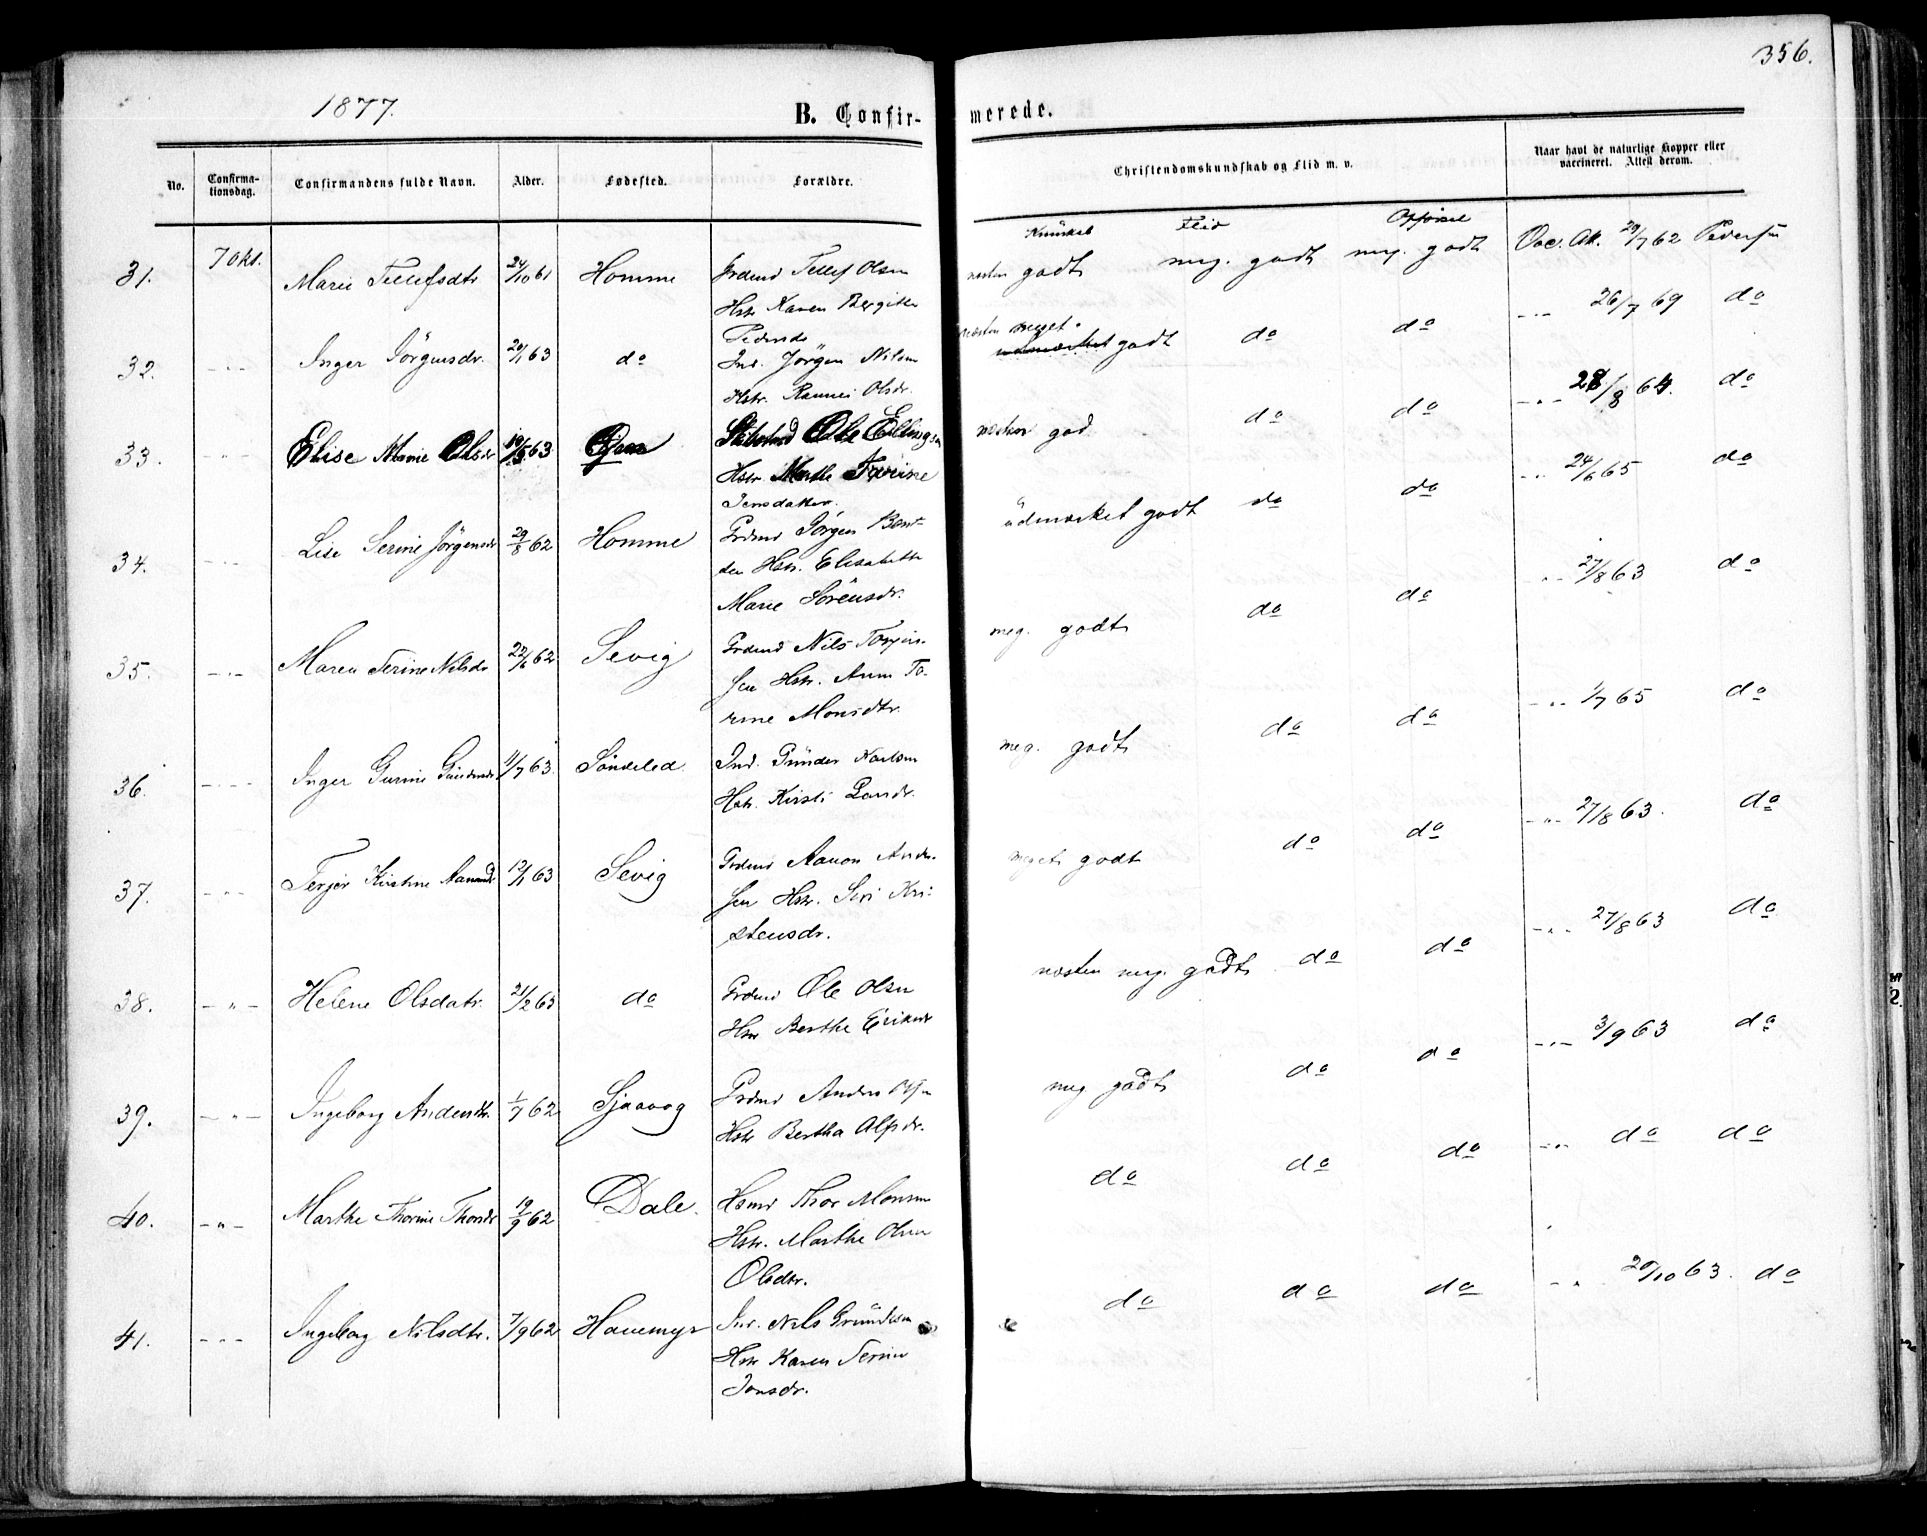 356.
1877.
B. Confir- merede.
No. Confirma-tionsdag. Confirmandens fulde Navn. Alder. Fødested. Forældre. Christendomskundskab og Flid m. v. Naar havt de naturlige Kopper eller vaccineret. Attest derom.
Kundskab Flid Opførsel
31. 7 Okt. Maria Tellefsdtr 24/10 61 Homme Grdmd Tellef Olsen næsten godt meg. godt meg. godt Vac. Att. 29/7 62 Pedersen
Hstr Karen Bergitte
Pedersdr
32. - " - Inger Jörgensdr. 20/1 63 do Ind. Jörgen Nilsen næsten meget godt do do - " - 26/7 69 do
Hstr. Olsdr.
33. - " - Elise Marie Olsdr 10/5 63 Ole Ellingsen næsten god do do - " - 28/8 64. do
Hstr Marthe
Jensdatter.
34. - " - Lise Serine Jörgensdr 29/8 62 Homme Grdmd Jörgen Bent- üdmærket godt do do - " - 24/6 65 do
sen Hstr. Elisabeth
Marie Sörensdr.
35. - " - Maren Terine Nilsdr 22/6 62 Sevig Grdmd Nils Torjus- meg. godt do do - " - 27/8 63 do
sen Hstr. Anne To-
rine Monsdtr.
36. - " - Inger Gurine 11/7 63 Söndeled Ind. Günder Karlsen meg. godt do do - " - 1/7 65 do
Hstr. Kirsti
37. - " - Terjer Kirstine 12/1 63 Sevig Grdmd Aanon Andr- meget godt do do - " - 27/8 63. do
sen Hstr. Siri Kri-
stensdr.
38. - " - Helene Olsdatr. 21/2 63 do Grdmd Ole Olsen næsten meg. godt do do - " - 27/8 63 do
Hstr Berthe Eriksdr
39. - " - Ingeborg Andersdtr. 1/7 62 Sjaavog Grdmd Anders meg godt do do - " - 3/9 63 do
Hstr Bertha Alfsdr.
40. - " - Marthe Thorine Thorsdr 19/9 62 Dale Hsmd Thor Monsen do do do - " - do do
Hstr. Marthe Olena
Olsdtr.
41. - " - Ingeborg Nilsdtr. 7/9 62 Havemyr Ind. Nils Gründesen do do do - " - 20/10 63. do
Hstr Karen Terine
Jonsdr.